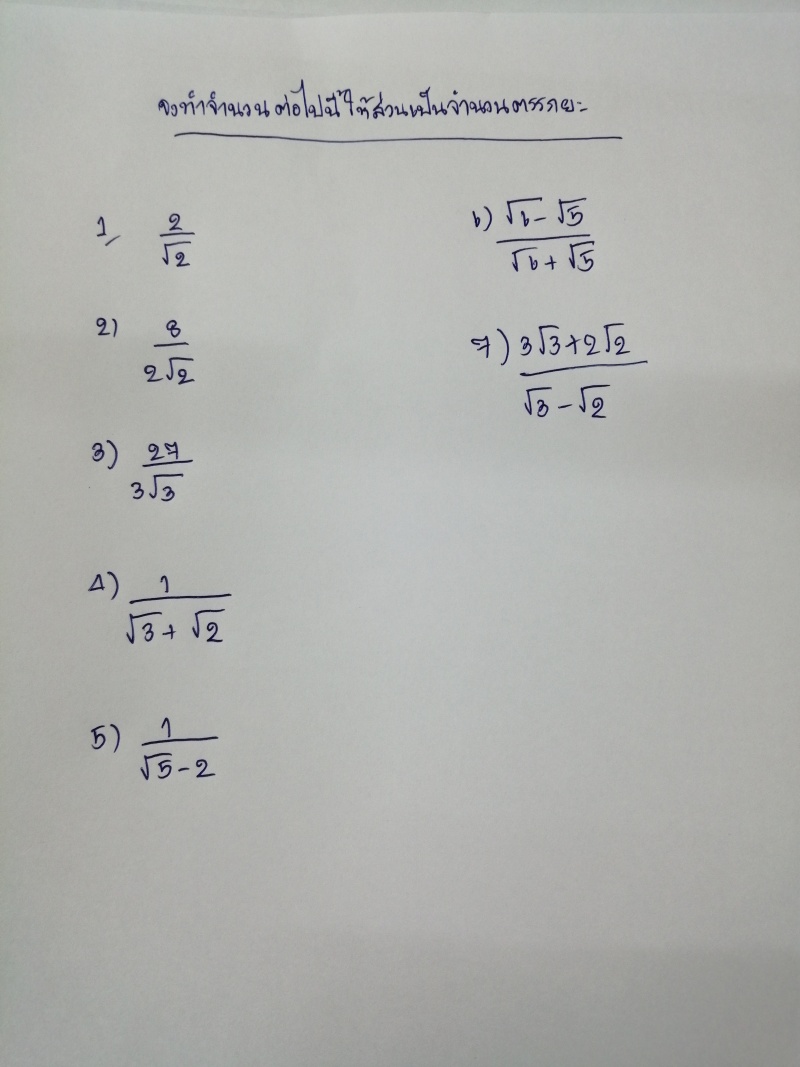 จงทำจำนวนต่อไปนี้ให้ส่วนเป็นจำนวนตรรกยะ
1, 2/√2
2) 8/2√2
3) 27/3√3
4) 1/(√3 + √2)
5) 1/(√5 - 2)
6) (√6 - √5)/(√6 + √5)
7) (3√3 + 2√2)/(√3 - √2)